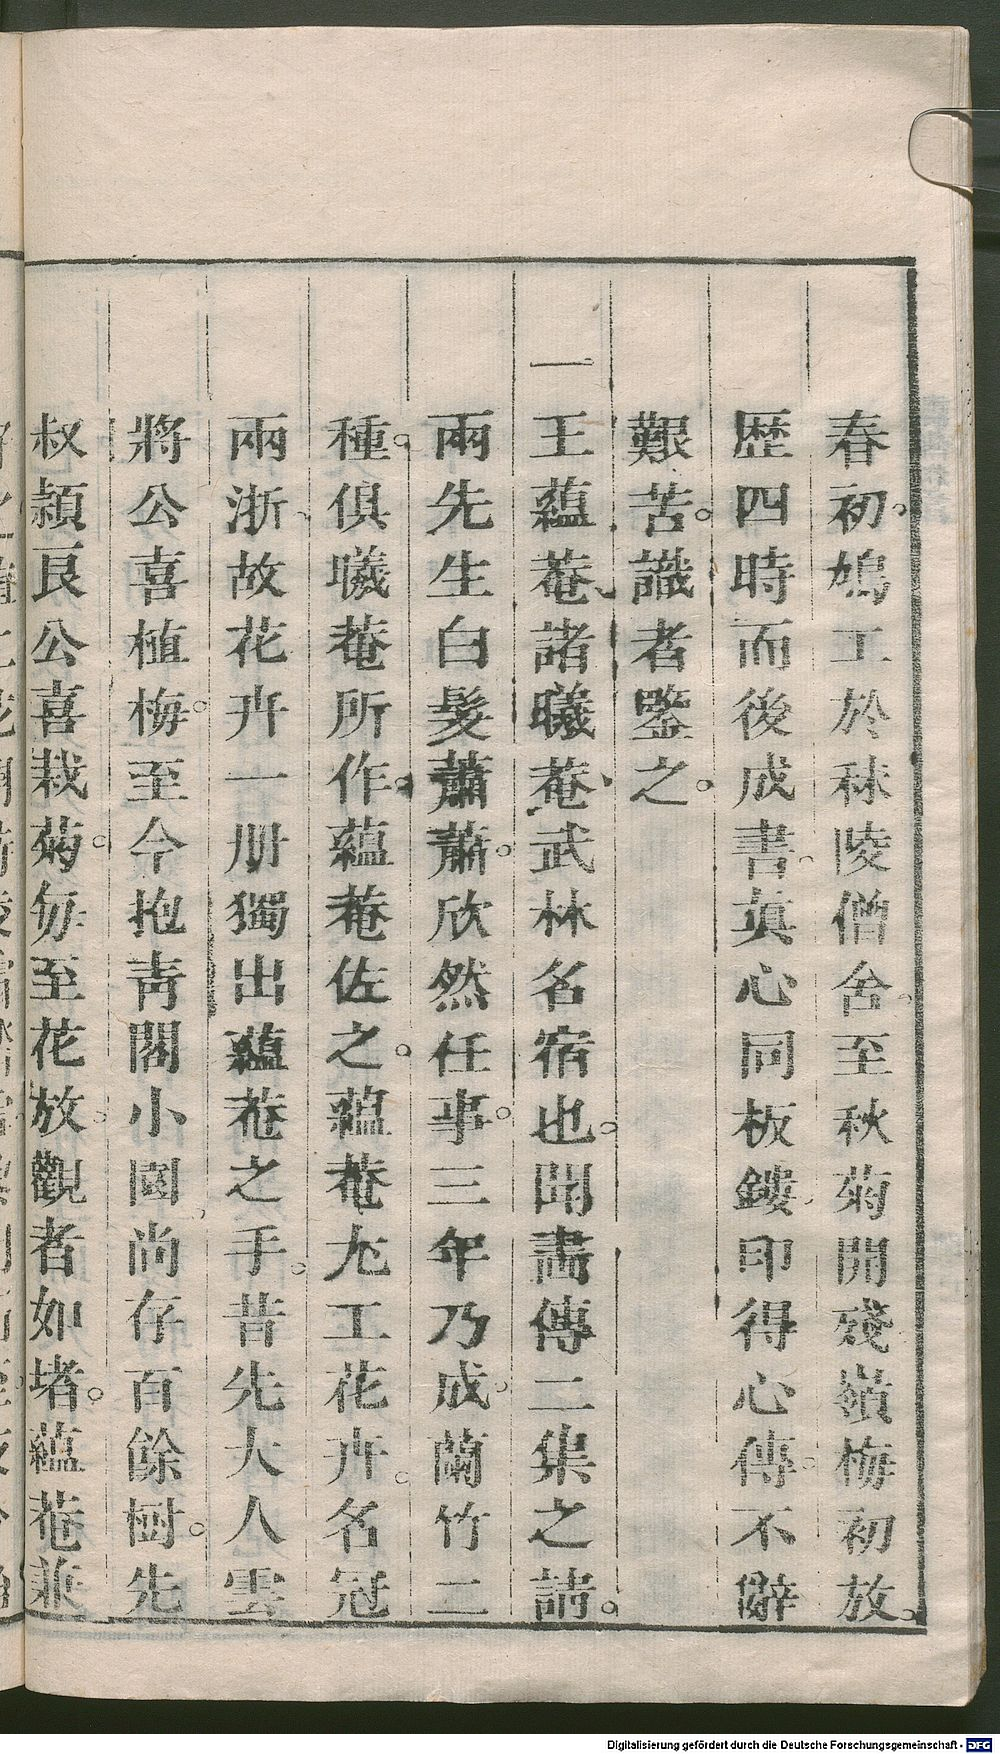 春初。鳩工於秣陵僧舍。至秋菊開殘嶺梅初放。
歷四時而後成書。真心同板鏤。印得心傳。不辭
艱苦。識者鑒之。
一王蘊菴、諸曦菴、武林名宿也。聞畫傳二集之請。
兩先生白髮蕭蕭。欣然任事。三年乃成。蘭竹二
種。俱曦菴所作。蘊菴佐之。蘊菴尤工花卉。名冠
兩浙、故花卉一册獨出蘊菴之手。昔先大人雲
將公喜植梅。至今抱靑閣小園。尚存百餘樹。先
叔頴良公喜栽菊。每至花放。觀者如堵。蘊菴兼
Digitalisierung gefördert durch die Deutsche Forschungsgemeinschaft - DFG